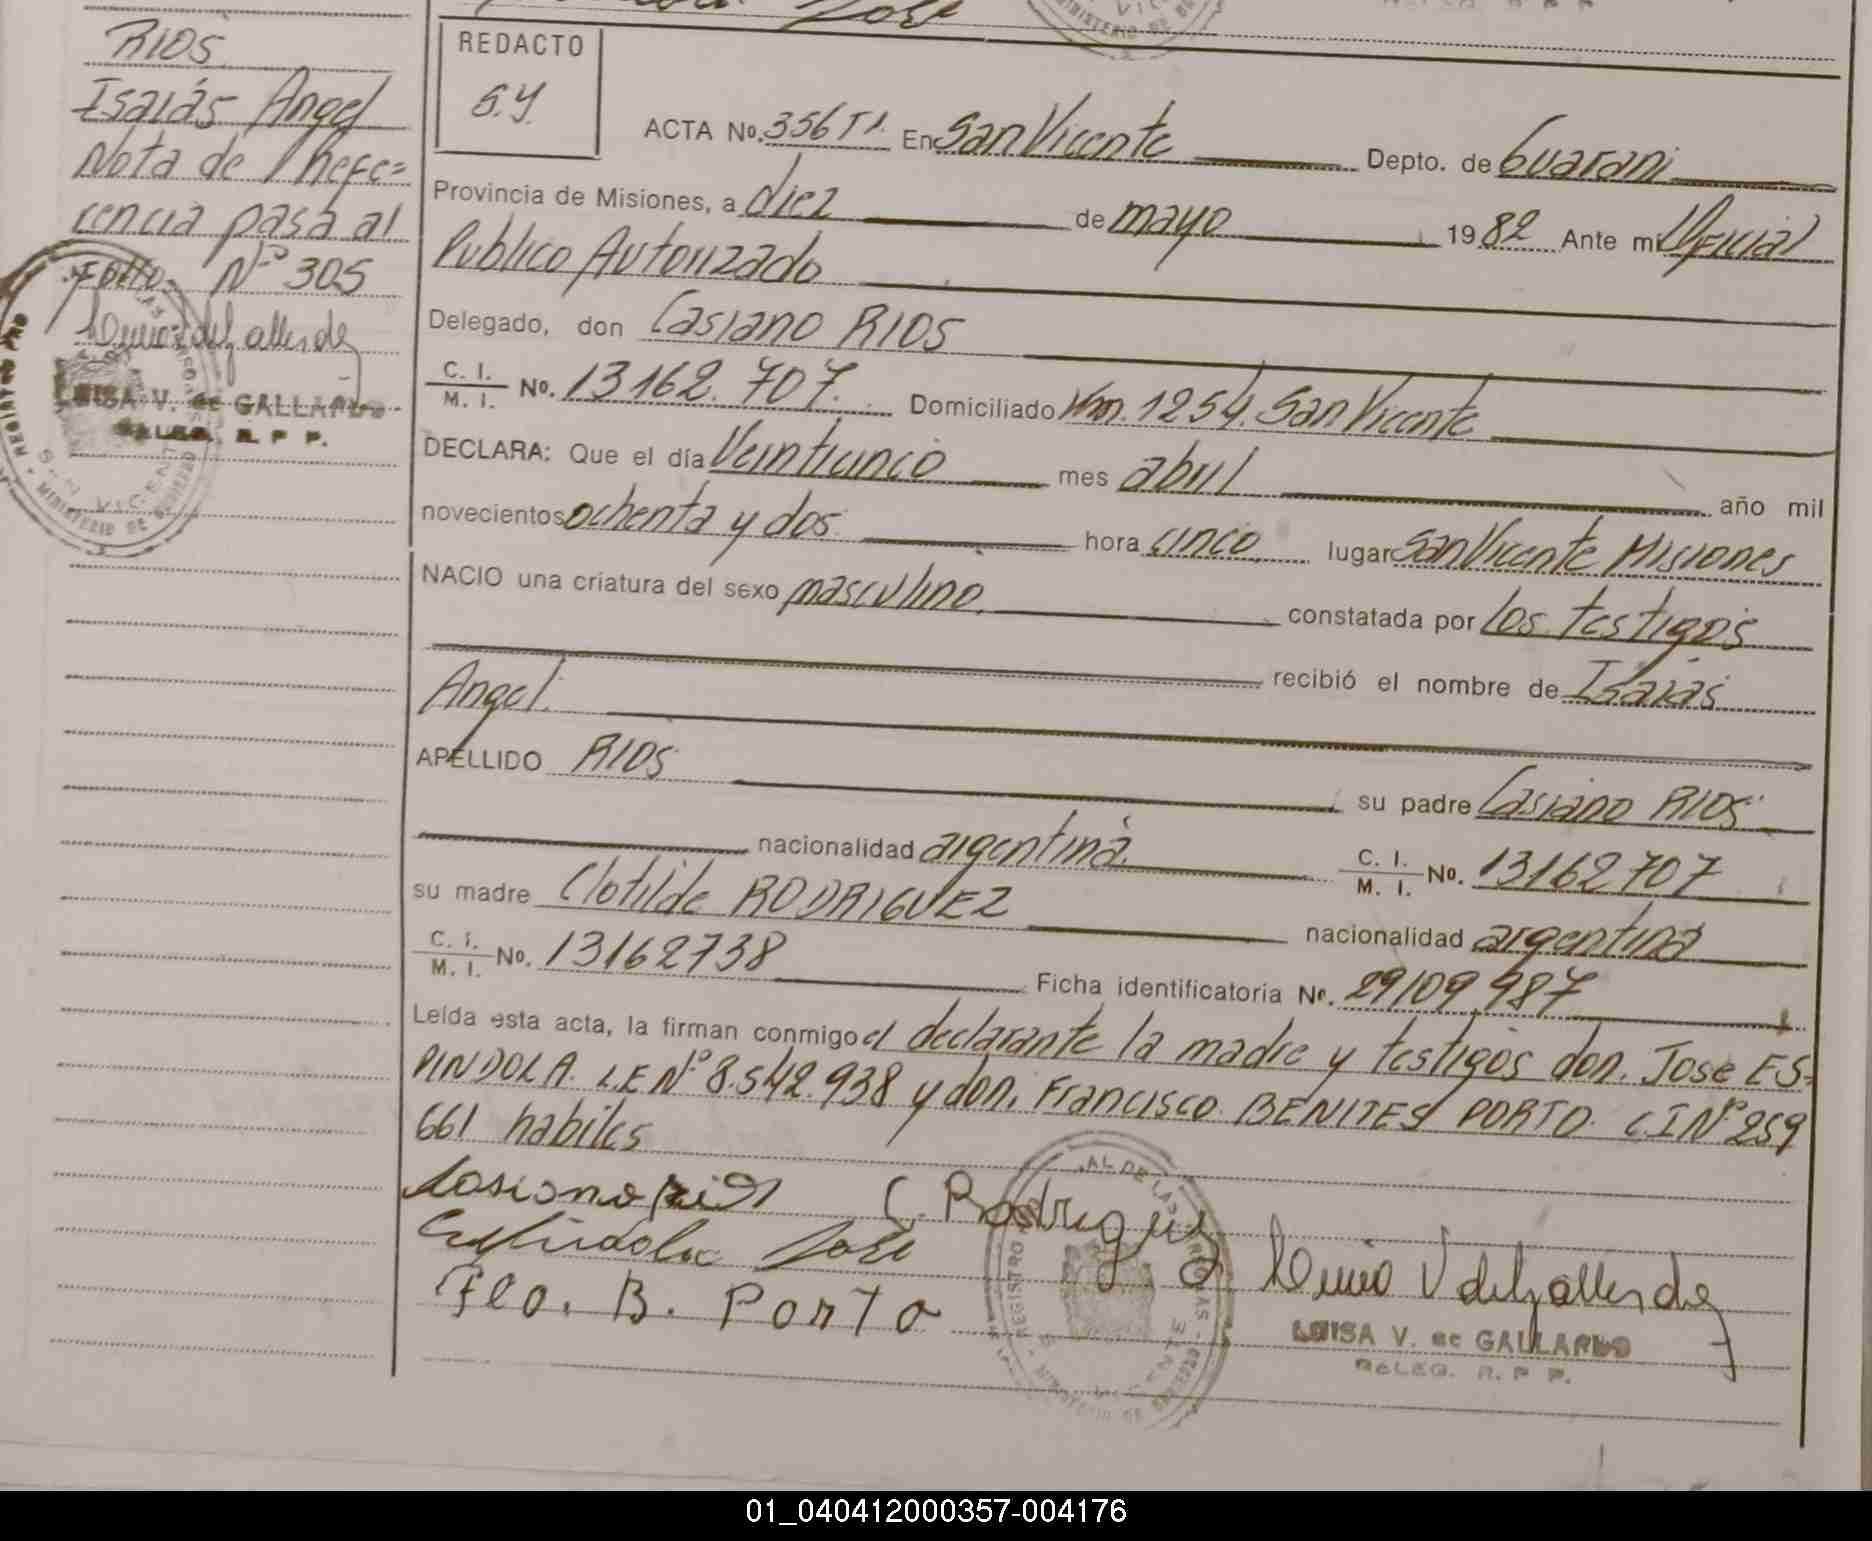 RIOS
Isaiás Angel
Nota de Refe=
rencia pasa al
Folio Nº 305
LUISA V. de GALLARDO
DELEG. R. P. P.
REDACTO
S.Y.
ACTA No. 356 T1. En San Vicente Depto. de Guarani
Provincia de Misiones, a diez de mayo 1982 Ante mi Oficial
Publico Autorizado
Delegado, don Casiano RIOS
C. I. / M. I. No. 13162.707. Domiciliado Km. 1254. San Vicente
DECLARA: Que el día Veinticinco mes abril año mil
novecientos ochenta y dos hora cinco lugar San Vicente Misiones
NACIO una criatura del sexo masculino. constatada por los testigos
recibió el nombre de Isaiás
Angel.
APELLIDO RIOS su padre Casiano RIOS
nacionalidad argentina. C. I. / M. I. No. 13162707
su madre Clotilde RODRIGUEZ nacionalidad argentina
C. I. / M. I. No. 13162738 Ficha identificatoria No. 29109987
Leída esta acta, la firman conmigo el declarante la madre y testigos don. Jose ES-
PINDOLA. L.E Nº 8.542.938 y don. Francisco BENITES PORTO. CI Nº 259
661 habiles
Casiano Rios C. Rodriguez
Espindola Jose
Fco. B. Porto
LUISA V. de GALLARDO
DELEG. R. P. P.
01_040412000357-004176